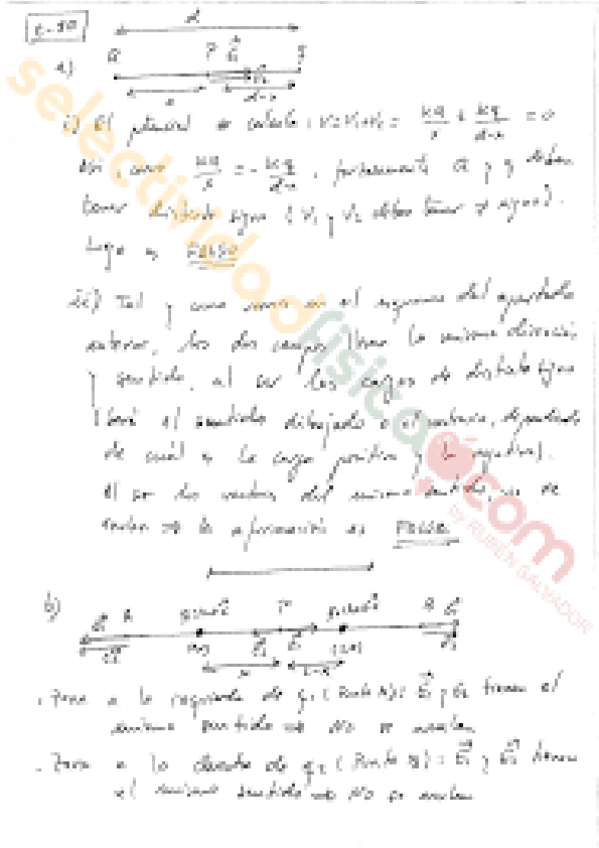 d
Q P E₁ q
a)
x d-x
i) El potencial se calcula: V=V₁+V₂ = KQ/x + Kq/d-x = 0
Así, como KQ/x = - Kq/d-x, Q y q deben
tener distinto signo (V₁ y V₂ deben tener ≠ signo).
Luego es FALSO
ii) Tal y como vemos en el esquema del apartado
anterior, los dos campos llevan la misma dirección
y sentido, al ser las cargas de distinto signo
(será el sentido dibujado o el contrario, dependiendo
de cuál es la carga positiva y la negativa).
Al ser dos vectores del mismo sentido, no se
anulan ⇒ la afirmación es FALSA
b)
P
x
. Zona a la izquierda de q₁ (Punto A): E₁ y E₂ tienen el
mismo sentido ⇒ No se anulan
. Zona a la derecha de q₂ (Punto B): E₁ y E₂ tienen
el mismo sentido ⇒ No se anulan
selectividadfisica.com
by RUBÉN SALVADOR